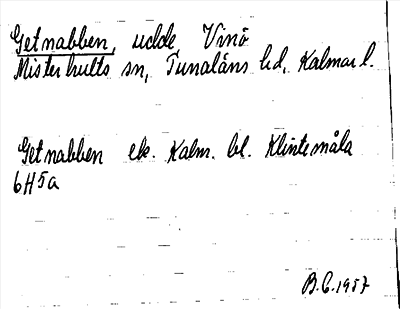 Getnabben, udde, Vinö
Misterhults sn, Tunaläns hd, Kalmar l.
Getnabben ek. Kalm. bl. Klintemåla
6H5a
B.C. 1957